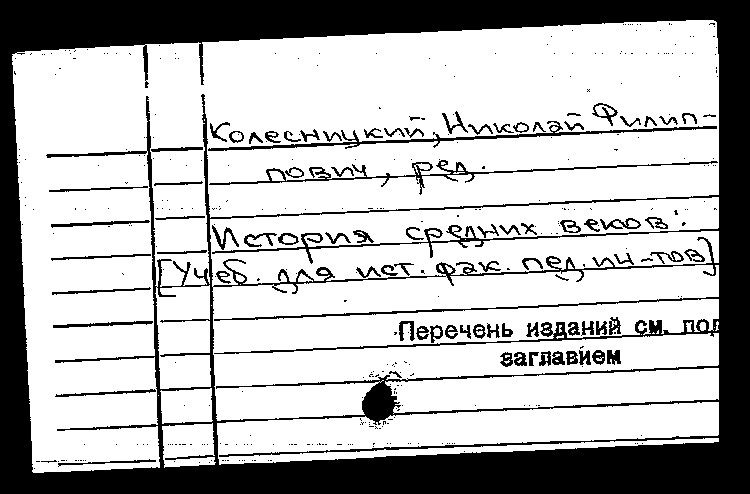 Колесницкий, Николай Филип-
пович, ред.
История средних веков:
[Учеб. для ист. фак. пед. ин-тов]
Перечень изданий см. под
заглавием